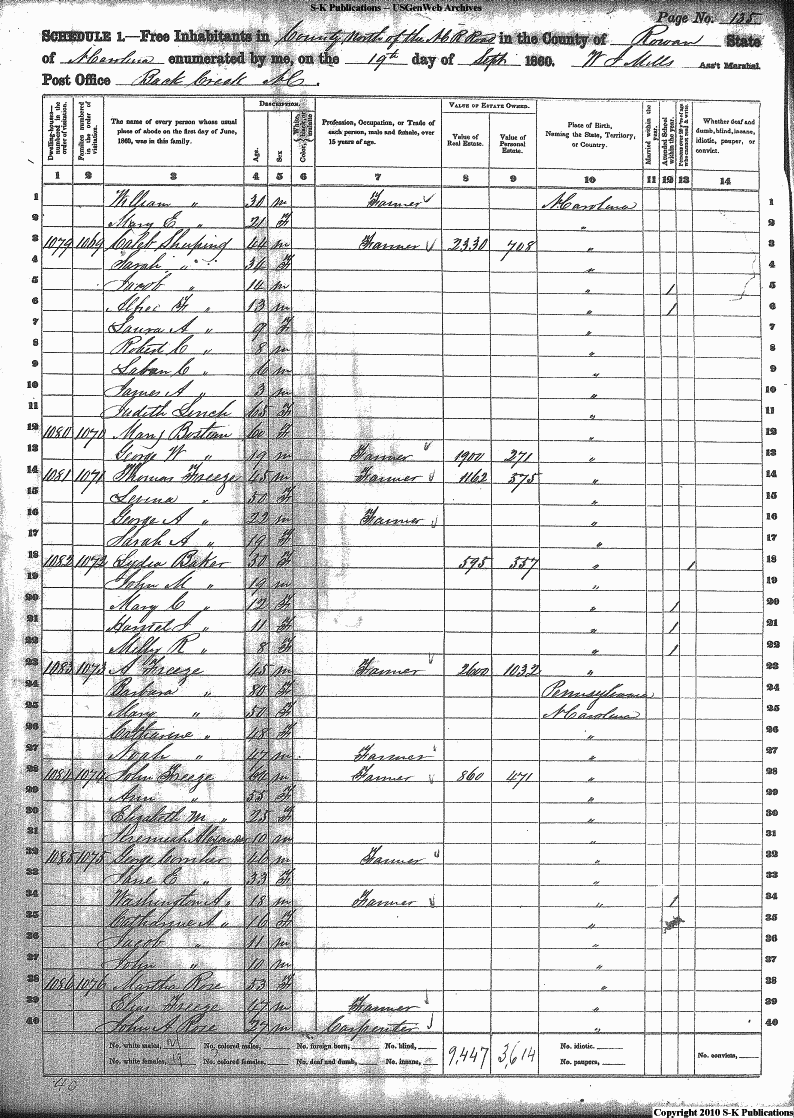 S-K Publications -- USGenWeb Archives
Page No. 135
SCHEDULE 1.—Free Inhabitants in County North of the N C R Road in the County of Rowan State
of N Carolina enumerated by me, on the 19th day of Sept 1860. W J Mills Ass't Marshal.
Post Office Back Creek N.C.
Dwelling-houses— numbered in the order of visitation.
Families numbered in the order of visitation.
The name of every person whose usual place of abode on the first day of June, 1860, was in this family.
DESCRIPTION.
Age.
Sex
Color,
Profession, Occupation, or Trade of each person, male and female, over 15 years of age.
VALUE OF ESTATE OWNED.
Value of Real Estate.
Value of Personal Estate.
Place of Birth, Naming the State, Territory, or Country.
Married within the year.
Attended School within the year.
Whether deaf and dumb, blind, insane, idiotic, pauper, or convict.
1 2 3 4 5 6 7 8 9 10 11 12 13 14
1 William " 30 m Farmer N Carolina 1
2 Mary E " 21 F " 2
3 1079 1069 Caleb Shuping 44 m Farmer 2330 708 " 3
4 Sarah " 34 F " 4
5 Jacob " 14 m " / 5
6 " 13 m " / 6
7 Laura A " 9 F " 7
8 Robert C " 8 m " 8
9 Laban C " 6 m " 9
10 James A " 3 m " 10
11 Judith Linch 65 F " 11
12 1080 1070 Mary Bostian 60 F " 12
13 George W " 19 m Farmer 1900 271 " 13
14 1081 1071 Thomas Freeze 45 m Farmer 1162 575 " 14
15 " 50 F " 15
16 George A " 22 m Farmer " 16
17 Sarah A " 19 F " 17
18 1082 1072 Lydia Baker 50 F 595 557 " / 18
19 John M " 19 m " 19
20 Mary C " 12 F " / 20
21 " 11 F " / 21
22 Milly R " 8 F " / 22
23 1083 1073 A Freeze 45 m Farmer 2600 1032 " 23
24 Barbara " 80 F Pennsylvania 24
25 Mary " 50 F N Carolina 25
26 Catharine " 48 F " 26
27 Noah " 47 m Farmer " 27
28 1084 1074 John Freeze 60 m Farmer 860 471 " 28
29 Ann " 55 F " 29
30 Elizabeth M " 25 F " 30
31 Jeremiah Alexander 10 m " 31
32 1085 1075 George 46 m Farmer " 32
33 Jane E " 33 F " 33
34 Washington A " 18 m Farmer " / 34
35 Catharine A " 16 F " 35
36 Jacob " 11 m " 36
37 John " 10 m " 37
38 1086 1076 Martha Rose 53 F " 38
39 Elias Freeze 47 m Farmer " 39
40 John A Rose 27 m Carpenter " 40
No. white males, No. colored males, No. foreign born, No. blind, 9,447 3,614 No. idiotic. No. convicts,
No. white females, 19 No. colored females. No. deaf and dumb, No. insane, No. paupers,
40
Copyright 2010 S-K Publications